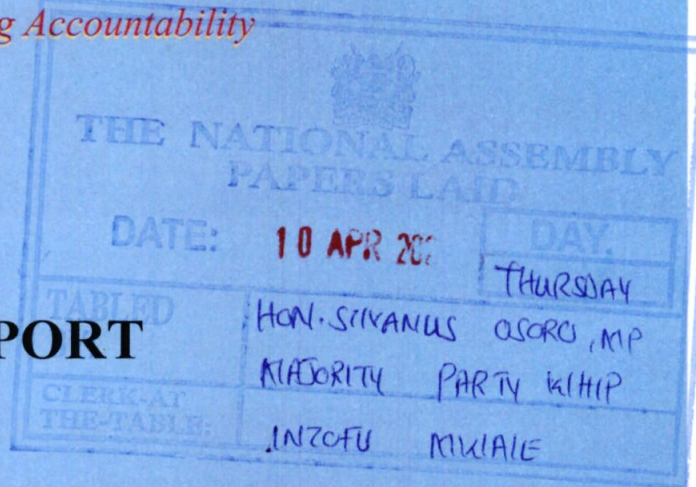 g Accountability
THE NATIONAL ASSEMBLY
PAPERS LAID
DATE: 10 APR 202
DAY.
THURSDAY
TABLED
HON. SILVANUS OSORO, MP
MAJORITY PARTY WHIP
PORT
CLERK-AT
THE-TABLE:
INZOFU MWALE